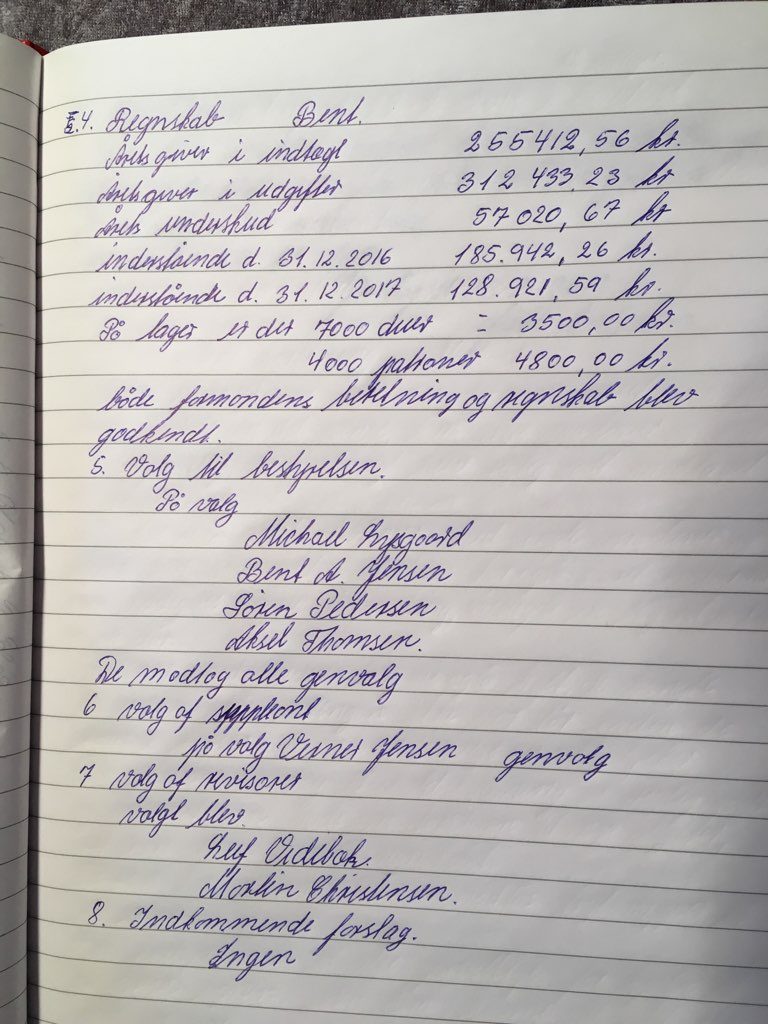 §.4. Regnskab Bent.
Årets giver i indtægt 255412,56 kr.
Årets giver i udgifter 312 433,23 kr
Årets underskud 57020,67 kr
indestående d. 31.12.2016 185.942,26 kr.
indestående d. 31.12.2017 128.921,59 kr.
På lager er der 7000 duer = 3500,00 kr.
4000 patroner 4800,00 kr.
både formandens beretning og regnskab blev
godkendt.
5. Valg til bestyrelsen.
På valg
Michael
Bent A. Jensen
Søren Pedersen
Aksel Thomsen.
De modtog alle genvalg
6 valg af suppleant
på valg Verner Jensen genvalg
7 valg af revisorer
valgt blev.
Leif Vidibak.
Martin Christensen.
8. Indkommende forslag.
Ingen